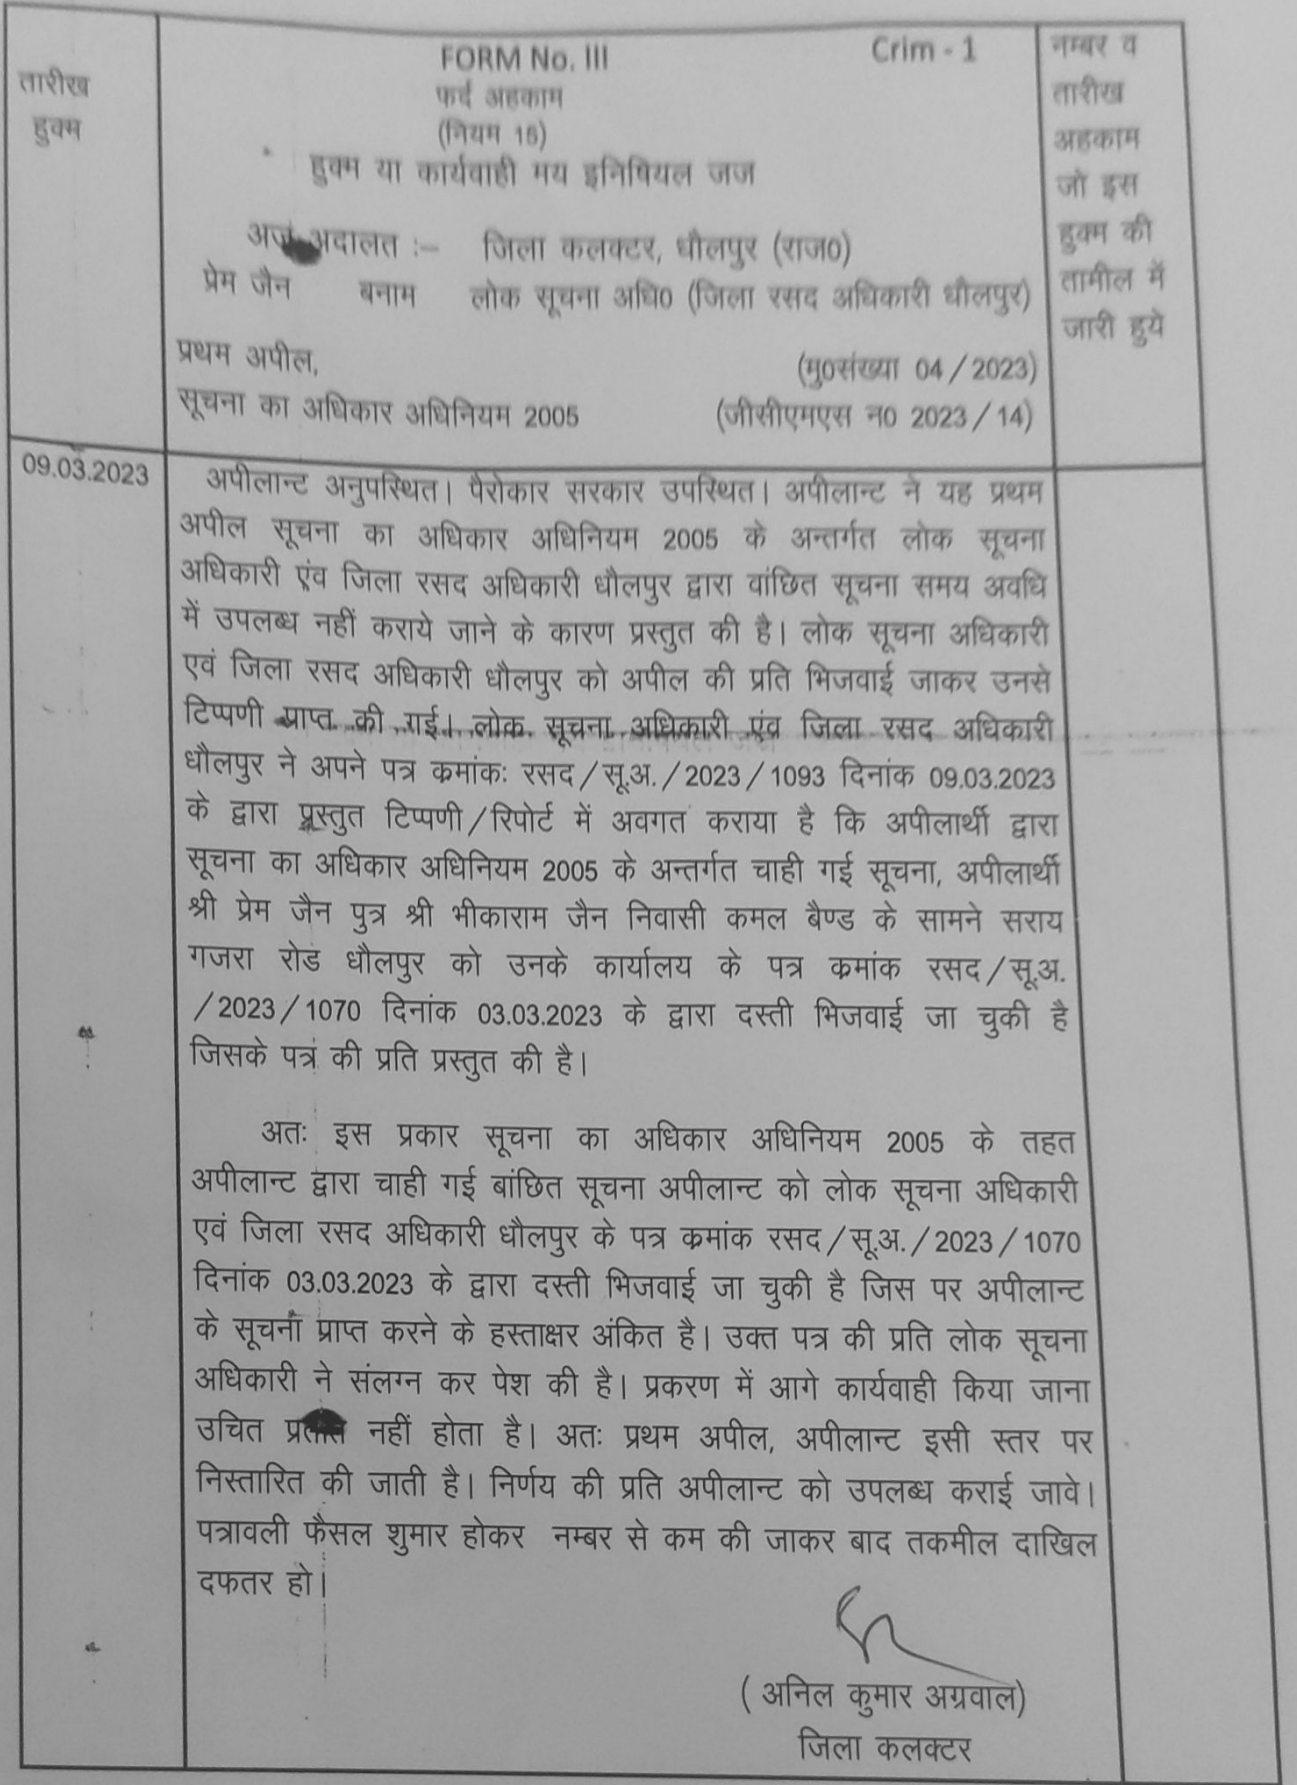 तारीख
हुक्म
FORM No. III
Crim - 1
फर्द अहकाम
(नियम 16)
हुक्म या कार्यवाही मय इनिषियल जज
अदालत :– जिला कलक्टर, धौलपुर (राज0)
प्रेम जैन बनाम लोक सूचना अधि0 (जिला रसद अधिकारी धौलपुर)
प्रथम अपील, (मु0संख्या 04/2023)
सूचना का अधिकार अधिनियम 2005 (जीसीएमएस न0 2023/14)
नम्बर व
तारीख
अहकाम
जो इस
हुक्म की
तामील में
जारी हुये
09.03.2023
अपीलान्ट अनुपस्थित। पैरोकार सरकार उपस्थित। अपीलान्ट ने यह प्रथम
अपील सूचना का अधिकार अधिनियम 2005 के अन्तर्गत लोक सूचना
अधिकारी एंव जिला रसद अधिकारी धौलपुर द्वारा वांछित सूचना समय अवधि
में उपलब्ध नहीं कराये जाने के कारण प्रस्तुत की है। लोक सूचना अधिकारी
एवं जिला रसद अधिकारी धौलपुर को अपील की प्रति भिजवाई जाकर उनसे
टिप्पणी प्राप्त की गई। लोक सूचना अधिकारी एंव जिला रसद अधिकारी
धौलपुर ने अपने पत्र क्रमांकः रसद/सू.अ./2023/1093 दिनांक 09.03.2023
के द्वारा प्रस्तुत टिप्पणी/रिपोर्ट में अवगत कराया है कि अपीलार्थी द्वारा
सूचना का अधिकार अधिनियम 2005 के अन्तर्गत चाही गई सूचना, अपीलार्थी
श्री प्रेम जैन पुत्र श्री भीकाराम जैन निवासी कमल बैण्ड के सामने सराय
गजरा रोड धौलपुर को उनके कार्यालय के पत्र क्रमांक रसद/सू.अ.
/2023/1070 दिनांक 03.03.2023 के द्वारा दस्ती भिजवाई जा चुकी है
जिसके पत्र की प्रति प्रस्तुत की है।
अतः इस प्रकार सूचना का अधिकार अधिनियम 2005 के तहत
अपीलान्ट द्वारा चाही गई बांछित सूचना अपीलान्ट को लोक सूचना अधिकारी
एवं जिला रसद अधिकारी धौलपुर के पत्र क्रमांक रसद/सू.अ./2023/1070
दिनांक 03.03.2023 के द्वारा दस्ती भिजवाई जा चुकी है जिस पर अपीलान्ट
के सूचना प्राप्त करने के हस्ताक्षर अंकित है। उक्त पत्र की प्रति लोक सूचना
अधिकारी ने संलग्न कर पेश की है। प्रकरण में आगे कार्यवाही किया जाना
उचित प्रतीत नहीं होता है। अतः प्रथम अपील, अपीलान्ट इसी स्तर पर
निस्तारित की जाती है। निर्णय की प्रति अपीलान्ट को उपलब्ध कराई जावे।
पत्रावली फैसल शुमार होकर नम्बर से कम की जाकर बाद तकमील दाखिल
दफतर हो।
( अनिल कुमार अग्रवाल)
जिला कलक्टर